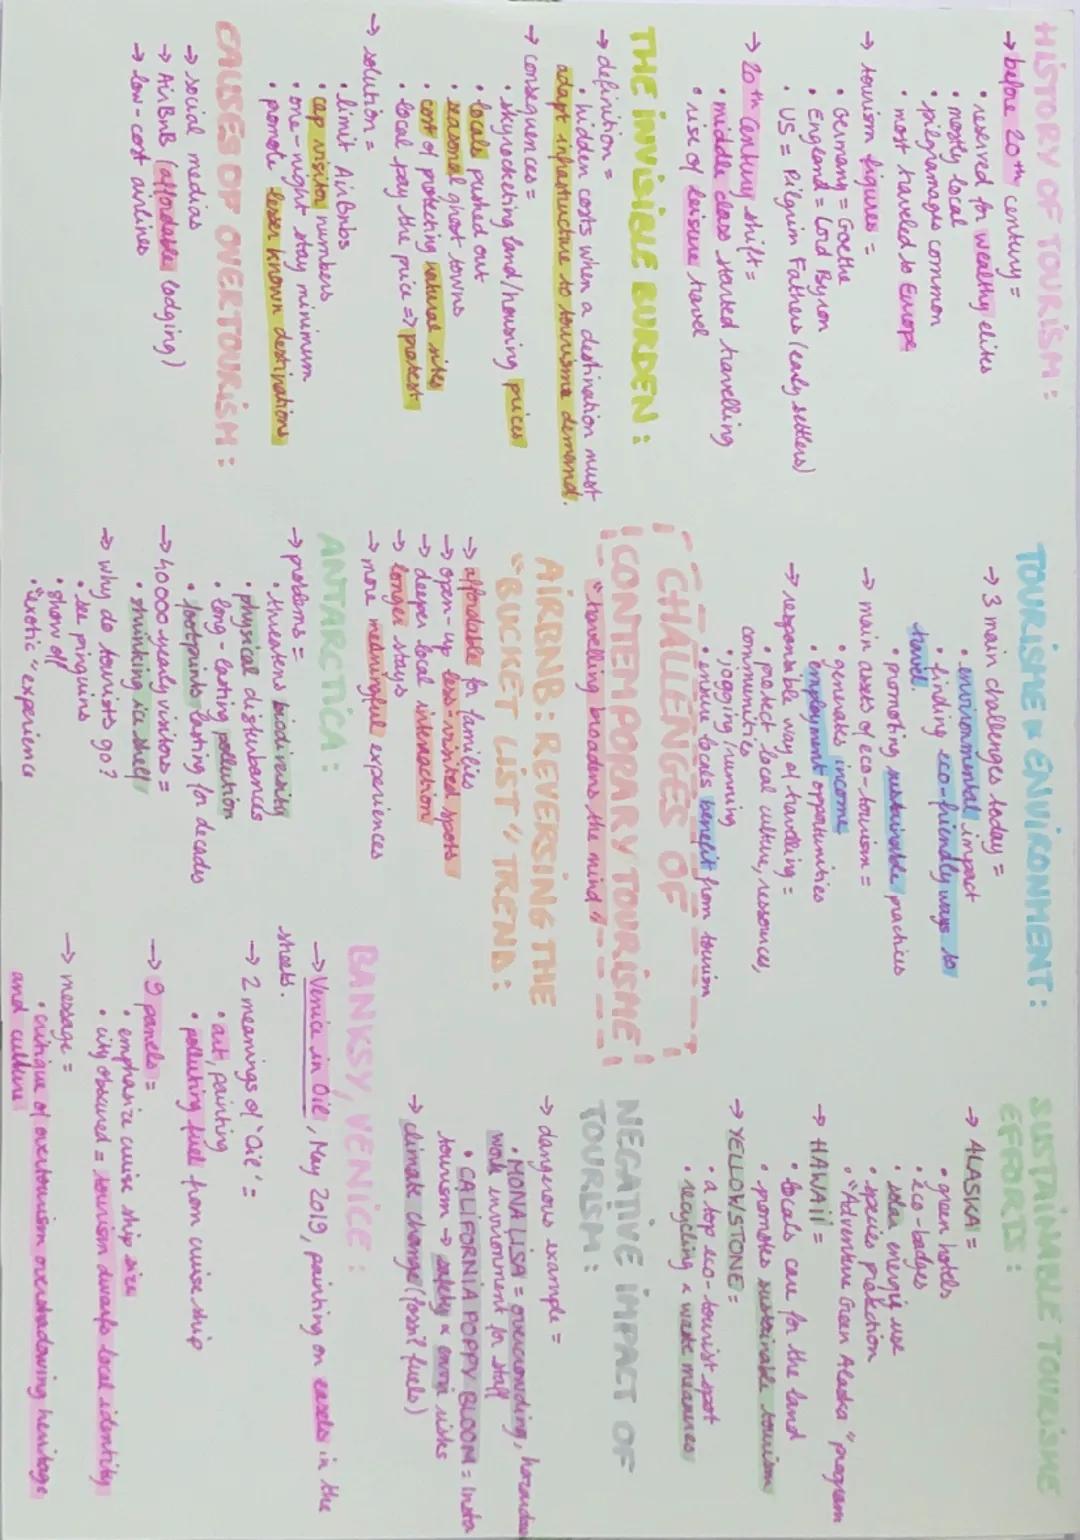 HISTORY OF TOURISM :
→ before 20th century =
• reserved for wealthy elites
• mostly local
• pilgrimages common
• most traveled to Europe
→ tourism figures =
• Germany = Goethe
• England = Lord Byron
• US = Pilgrim Fathers (early settlers)
→ 20th century shift =
• middle class started travelling
• rise of leisure travel
THE INVISIBLE BURDEN :
→ definition =
• hidden costs when a destination must
adapt infrastucture to tourisme demand.
→ consequences =
• skyrocketing land/housing prices
• locals pushed out
• seasonal ghost towns
• cost of protecting natural sites
• local pay the price => protest
→ solution =
• limit AirBnbs
• cap visitor numbers
• one-night stay minimum
• promote lesser known destinations
CAUSES OF OVERTOURISM :
→ social medias
→ AirBnB (affordable lodging)
→ low-cost airlines
TOURISME & ENVIRONMENT :
→ 3 main challenges today =
• environmental impact
• finding eco-friendly ways to
travel
• promoting sustainable practices
→ main assets of eco-tourism =
• generates income
• employment opportunities
→ responsible way of travelling =
• protect local culture, ressources,
communities
• jogging/running
• ensure locals benefit from tourism
CHALLENGES OF
CONTEMPORARY TOURISME
"travelling broadens the mind"
AIRBNB : REVERSING THE
"BUCKET LIST" TREND :
→ affordable for families
→ open-up less-visited spots
→ deeper local interaction
→ longer stays
→ more meaningful experiences
ANTARCTICA :
→ problems =
• threatens biodiversity
• physical disturbances
• long-lasting pollution
• footprints lasting for decades
→ 40000 yearly visitors =
• shrinking ice shelf
→ why do tourists go?
• see pinguins
• show off
• "exotic" experience
SUSTAINABLE TOURISME
EFFORTS :
→ ALASKA =
• green hotels
• eco-badges
• solar energie use
• species protection
• "Adventure Green Alaska" program
→ HAWAII =
• locals care for the land
• promotes sustainable tourism
→ YELLOWSTONE =
• a top eco-tourist spot
• recycling & waste measures
NEGATIVE IMPACT OF
TOURISM :
→ dangerous example =
• MONA LISA = overcrowding,
work environment for staff
• CALIFORNIA POPPY BLOOM = insta
tourism → safety & envi risks
→ climate change (fossil fuels)
BANKSY, VENICE :
→ Venice in Oil, May 2019, painting on easels in the
streets.
→ 2 meanings of "Oil" =
• art, painting
• polluting fuel from cruise ship
→ 9 panels =
• emphasize cruise ship size
• city obscured = tourism dwarfs local identity
→ message =
• critique of overtourism overshadowing heritage
and culture